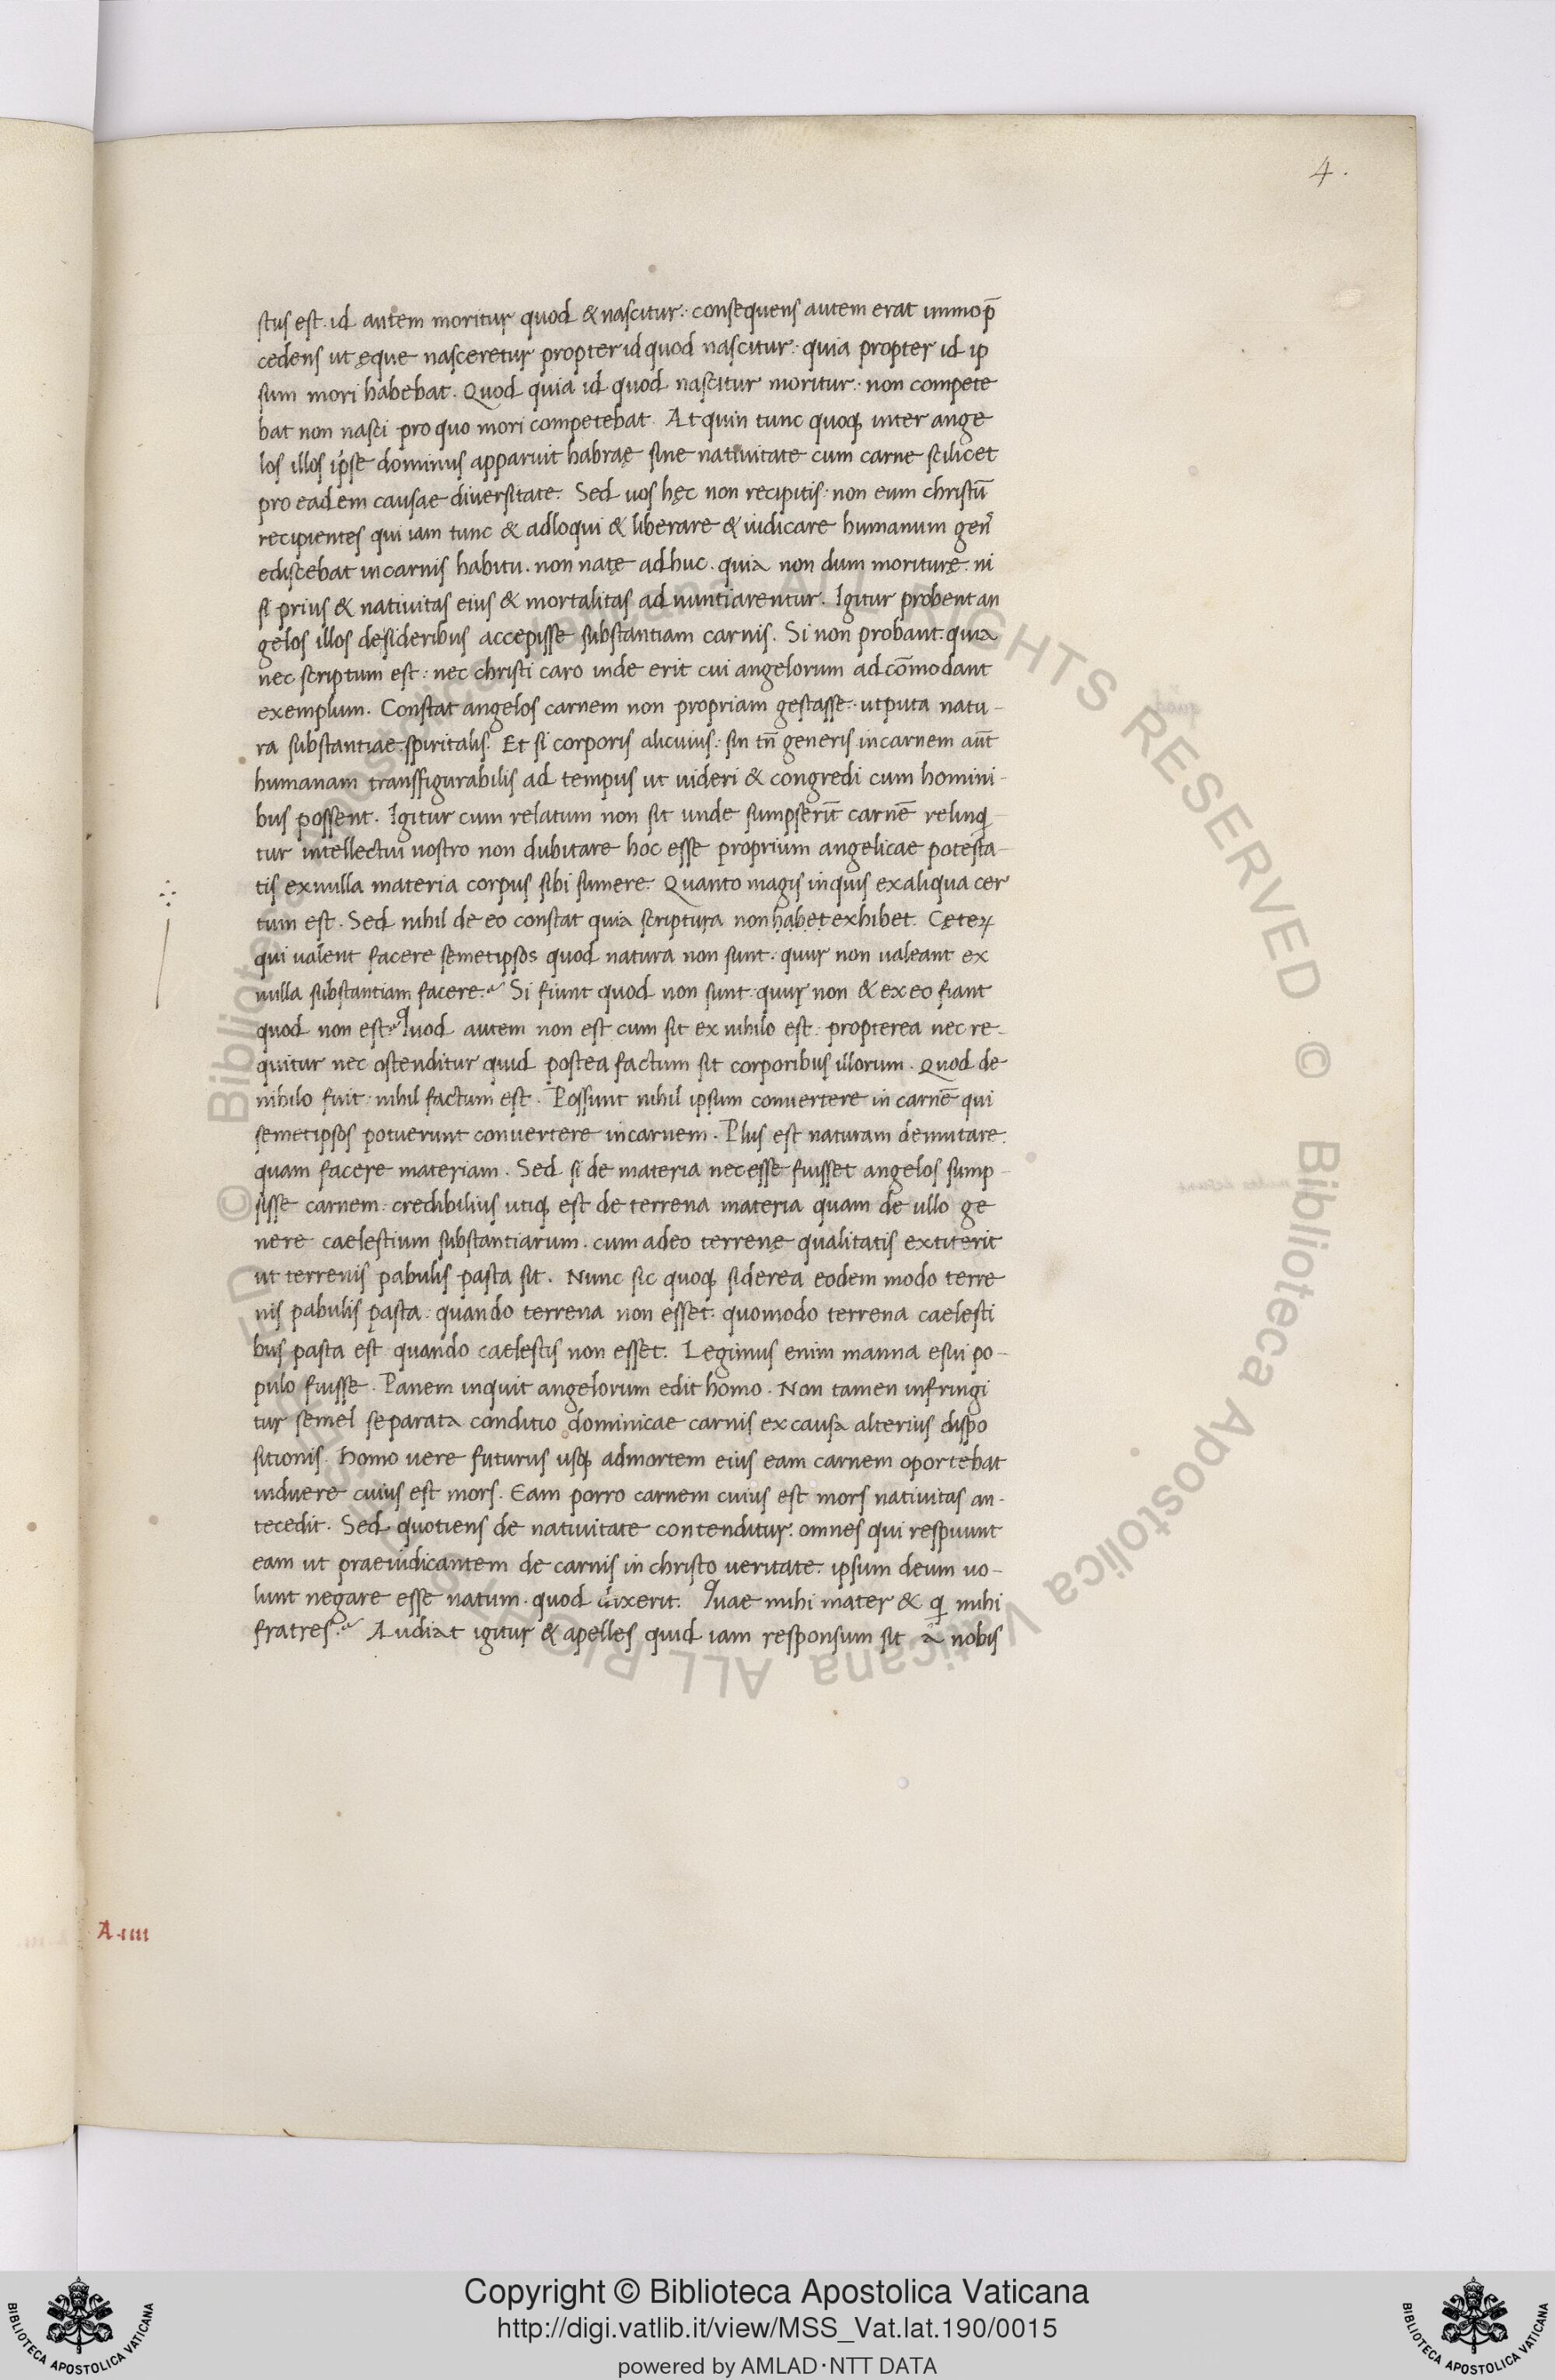 4.
stus est. id autem moritur quod & nascitur: consequens autem erat immo p̄
cedens ut ęque nasceretur propter id quod nascitur: quia propter id ip
sum mori habebat. Quod quia id quod nascitur moritur: non compete
bat non nasci pro quo mori competebat. Atquin tunc quoq; inter ange
los illos ipse dominus apparuit habraę sine nativitate cum carne scilicet
pro eadem causae diversitate. Sed uos hęc non recipitis: non eum christū
recipientes qui iam tunc & adloqui & liberare & iudicare humanum gen᾿
ediscebat in carnis habitu. non natę adhuc. quia non dum moriturę. ni
si prius & nativitas eius & mortalitas adnuntiarentur. Igitur probent an
gelos illos desideribus accepisse substantiam carnis. Si non probant. quia
nec scriptum est: nec christi caro inde erit cui angelorum adcōmodant
exemplum. Constat angelos carnem non propriam gestasse: utputa natu-
ra substantiae spiritalis. Et si corporis alicuius: sui tn̄ generis in carnem aūt
humanam transfigurabilis ad tempus ut uideri & congredi cum homini-
bus possent. Igitur cum relatum non sit unde sumpserūt carnē relinq-
tur intellectui nostro non dubitare hoc esse proprium angelicae potesta-
tis ex nulla materia corpus sibi sumere. Quanto magis inquis ex aliqua cer
tum est. Sed nihil de eo constat quia scriptura non habet exhibet. Cęteꝝ
qui valent facere semetipsos quod natura non sunt. quur non ualeant ex
nulla substantiam facere? Si fiunt quod non sunt. quur non & ex eo fiant
quod non est? Quod autem non est cum sit ex nihilo est. propterea nec re-
quitur nec ostenditur quid postea factum sit corporibus illorum. Quod de
nihilo fuit. nihil factum est. Possunt nihil ipsum convertere in carnē qui
semetipsos potuerunt convertere in carnem. Plus est naturam demutare.
quam facere materiam. Sed si de materia necesse fuisset angelos sump-
sisse carnem. credibilius utiq; est de terrena materia quam de ullo ge
nere caelestium substantiarum. cum adeo terrenę qualitatis extiterit
ut terrenis pabulis pasta sit. Nunc sic quoq; siderea eodem modo terre
nis pabulis pasta. quando terrena non esset. quomodo terrena caelesti
bus pasta est quando caelestis non esset. Legimus enim manna esui po-
pulo fuisse. Panem inquit angelorum edit homo. Non tamen infringi
tur semel separata conditio dominicae carnis ex causa alterius dispo
sitionis. Homo uere futurus usq; ad mortem eius eam carnem oportebat
induere cuius est mors. Eam porro carnem cuius est mors nativitas an-
tecedit. Sed quotiens de nativitate contenditur. omnes qui respuunt
eam ut praeiudicantem de carnis in christo veritate. ipsum deum uo-
lunt negare esse natum. quod dixerit. Quae mihi mater & q mihi
fratres? Audiat igitur & apelles quid iam responsum sit a nobis
A.iiii
Copyright © Biblioteca Apostolica Vaticana
http://digi.vatlib.it/view/MSS_Vat.lat.190/0015
powered by AMLAD·NTT DATA
BIBLIOTECA APOSTOLICA VATICANA
BIBLIOTECA APOSTOLICA VATICANA
© Biblioteca Apostolica Vaticana ALL RIGHTS RESERVED © Biblioteca Apostolica Vaticana ALL RIGHTS RESERVED